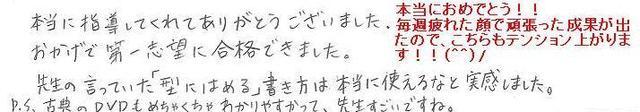 本当に指導してくれてありがとうございました。
おかげで第一志望に合格できました。
本当におめでとう！！
毎週疲れた顔で頑張った成果が出
たので、こちらもテンション上がりま
す！！(^^)/
先生の言っていた「型にはめる」書き方は本当に使えるなと実感しました。
P.S. 古典のDVDもめちゃくちゃわかりやすかって、先生すごいですね。